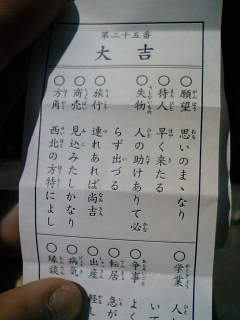 第二十五番
大吉
○願望 思いのまゝなり
○待人 早く来たる
○失物 人の助けありて必
らず出づる
○旅行 連れあれば尚吉
○商売 見込みたしかなり
○方角 西北の方特によし
○学業 人
いて
○争事 よく
○転居 急が
○出産 軽し
○病気
○縁談